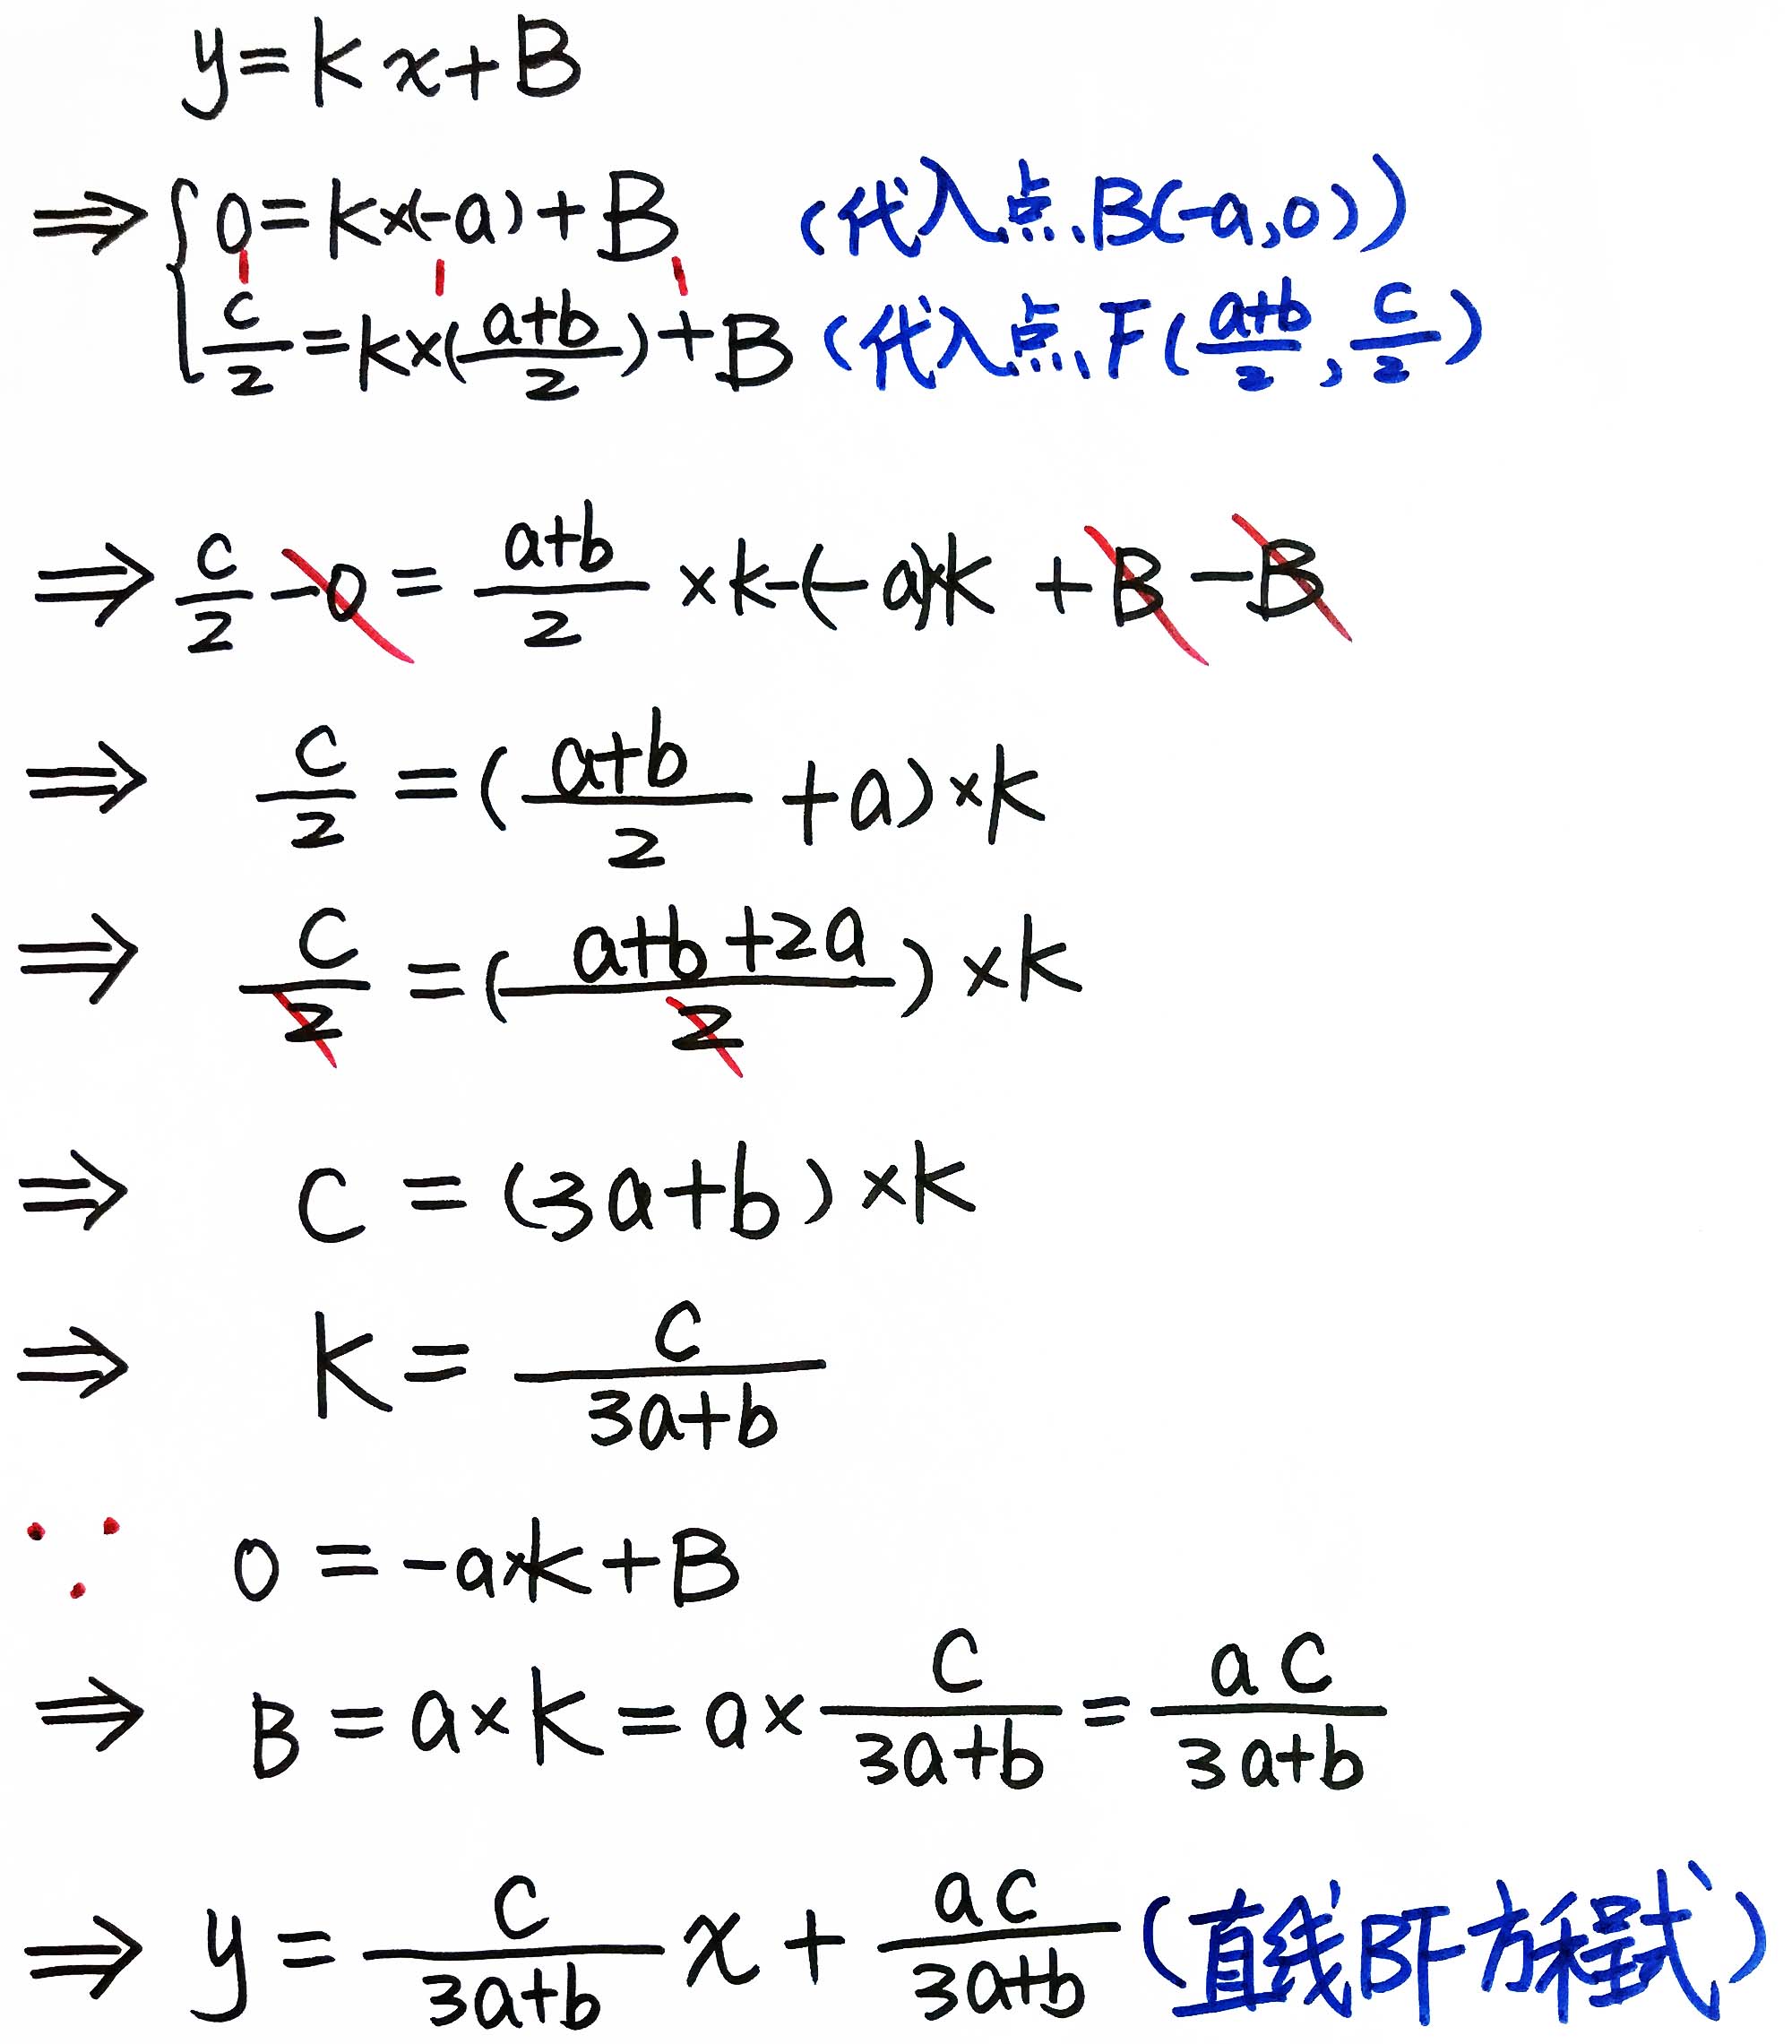 y=kx+B
⇒ { 0=k×(-a)+B (代入点B(-a,0))
c/2=k×((a+b)/2)+B (代入点F((a+b)/2, c/2)
⇒ c/2-0=(a+b)/2×k-(-a)×k+B-B
⇒ c/2=((a+b)/2+a)×k
⇒ c/2=((a+b+2a)/2)×k
⇒ c=(3a+b)×k
⇒ k=c/(3a+b)
∵ 0=-a×k+B
⇒ B=a×k=a×c/(3a+b)=ac/(3a+b)
⇒ y=c/(3a+b) x+ac/(3a+b) (直线BF方程式)